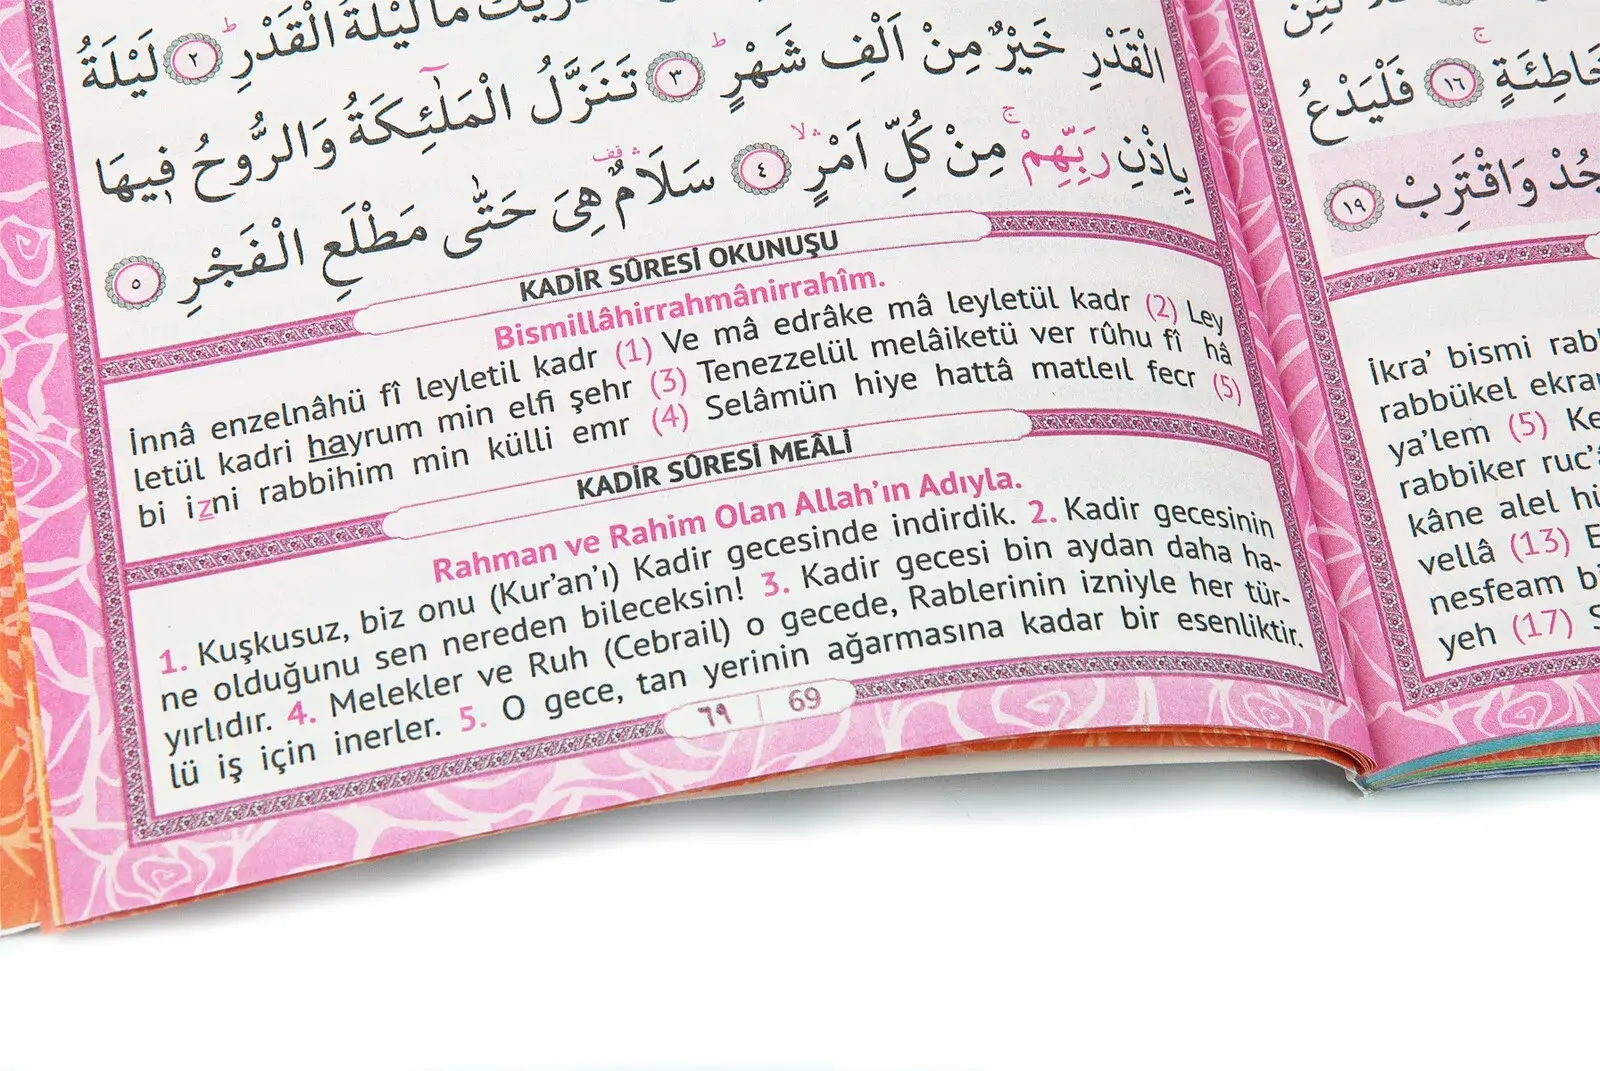 مَا لَيْلَةُ الْقَدْرِ ط ٢ لَيْلَةُ
الْقَدْرِ خَيْرٌ مِنْ اَلْفِ شَهْرٍ ط ٣ تَنَزَّلُ الْمَلٰٓئِكَةُ وَالرُّوحُ ف۪يهَا
بِاِذْنِ رَبِّهِمْ ج مِنْ كُلِّ اَمْرٍ ۛ لا ٤ سَلَامٌ ۛ قف هِيَ حَتّٰى مَطْلَعِ الْفَجْرِ ٥
KADİR SÛRESİ OKUNUŞU
Bismillâhirrahmânirrahîm.
İnnâ enzelnâhü fî leyletil kadr (1) Ve mâ edrâke mâ leyletül kadr (2) Ley
letül kadri hayrum min elfi şehr (3) Tenezzelül melâiketü ver rûhu fî hâ
bi izni rabbihim min külli emr (4) Selâmün hiye hattâ matleıl fecr (5)
KADİR SÛRESİ MEÂLİ
Rahman ve Rahim Olan Allah’ın Adıyla.
1. Kuşkusuz, biz onu (Kur’an’ı) Kadir gecesinde indirdik. 2. Kadir gecesinin
ne olduğunu sen nereden bileceksin! 3. Kadir gecesi bin aydan daha ha-
yırlıdır. 4. Melekler ve Ruh (Cebrail) o gecede, Rablerinin izniyle her tür-
lü iş için inerler. 5. O gece, tan yerinin ağarmasına kadar bir esenliktir.
٦٩ | 69
خَاطِئَةٍ ج ١٦ فَلْيَدْعُ
وَاقْتَرِبْ ١٩
İkra’ bismi
rabbükel
ya’lem (5)
rabbiker ruc’â
kâne alel
vellâ (13)
nesfeam
yeh (17)